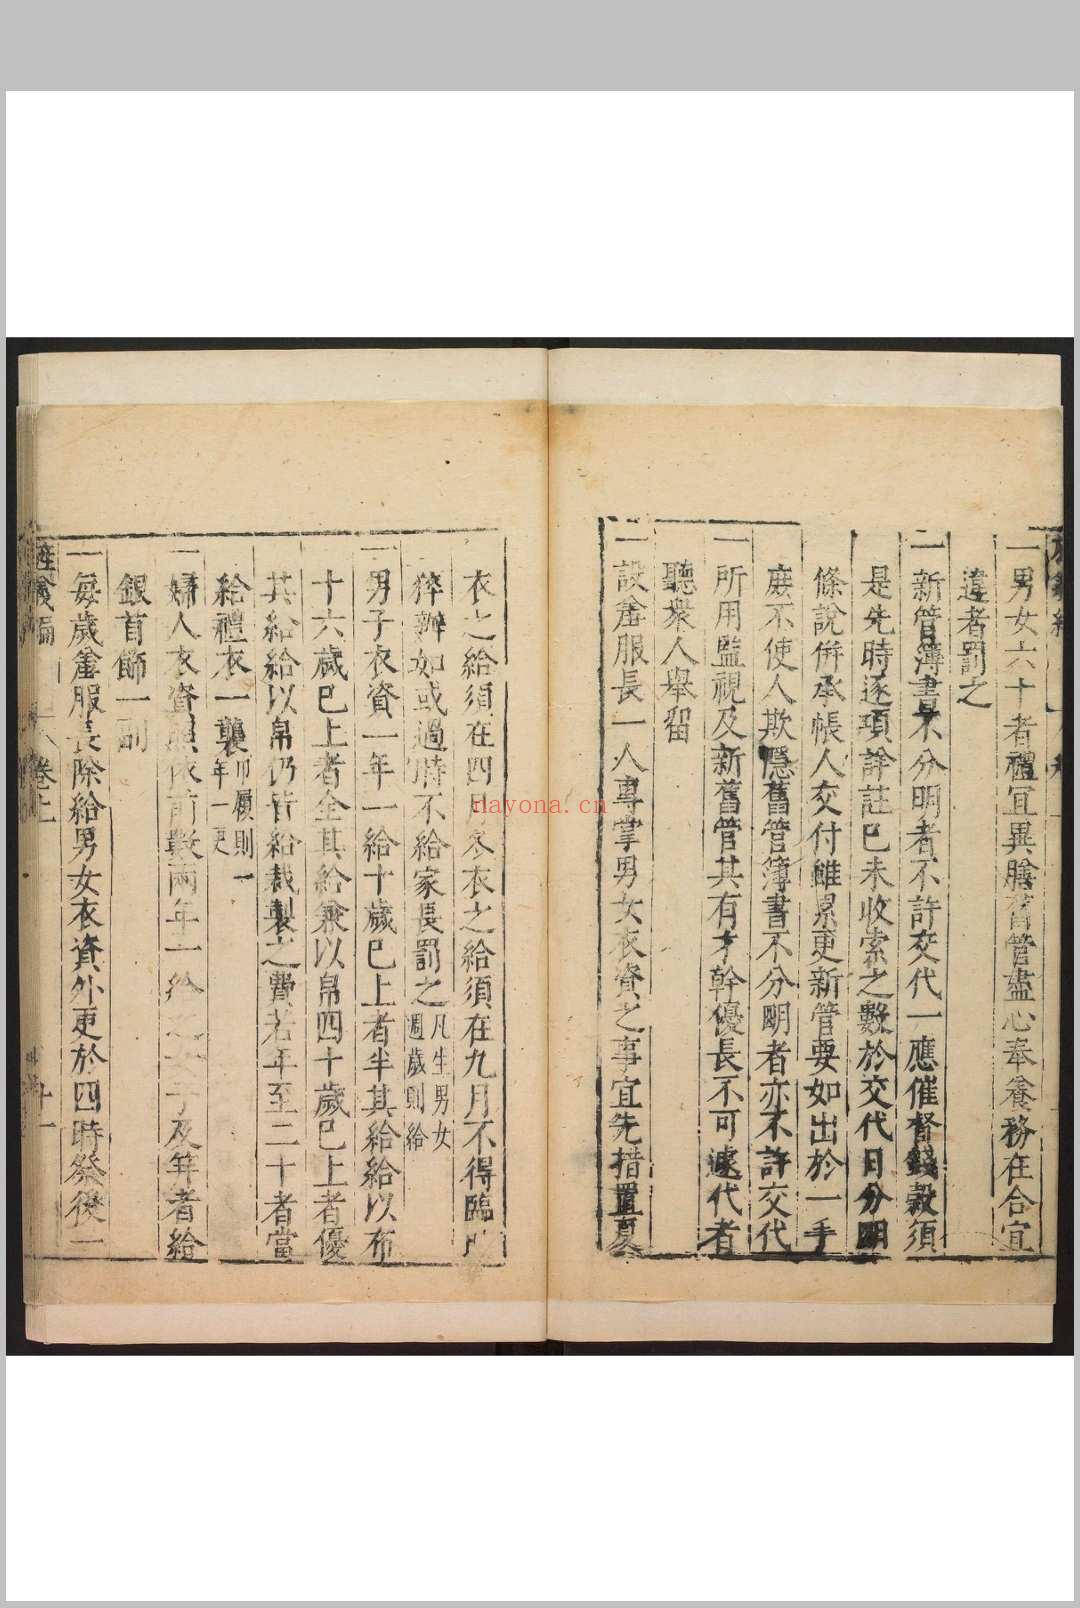 一男女六十者禮宜異膳舊管盡心奉養務在合宜
違者罰之
一新管簿書不分明者不許交代一應催督錢穀須
是先時逐項詳註已未收索之數於交代日分明
條說併承帳人交付雖累更新管要如出於一手
庶不使人欺隱舊管簿書不分明者亦不許交代
一所用監視及新舊管其有才幹優長不可遽代者
聽衆人舉留
一設羞服長一人專掌男女衣資之事宜先措置夏
衣之給須在四月冬衣之給須在九月不得臨時
猝辦如或過時不給家長罰之凡生男女週歲則給
一男子衣資一年一給十歲已上者半其給給以布
十六歲已上者全其給兼以帛四十歲已上者優
其給給以帛仍皆給裁製之費若年至二十者當
給禮衣一襲巾履則一年一更
一婦人衣資照依前數兩年一給女子及笄者給
銀首飾一副
一每歲羞服長除給男女衣資外更於四時祭後一
旌義編
卷上
十一
nayona.cn